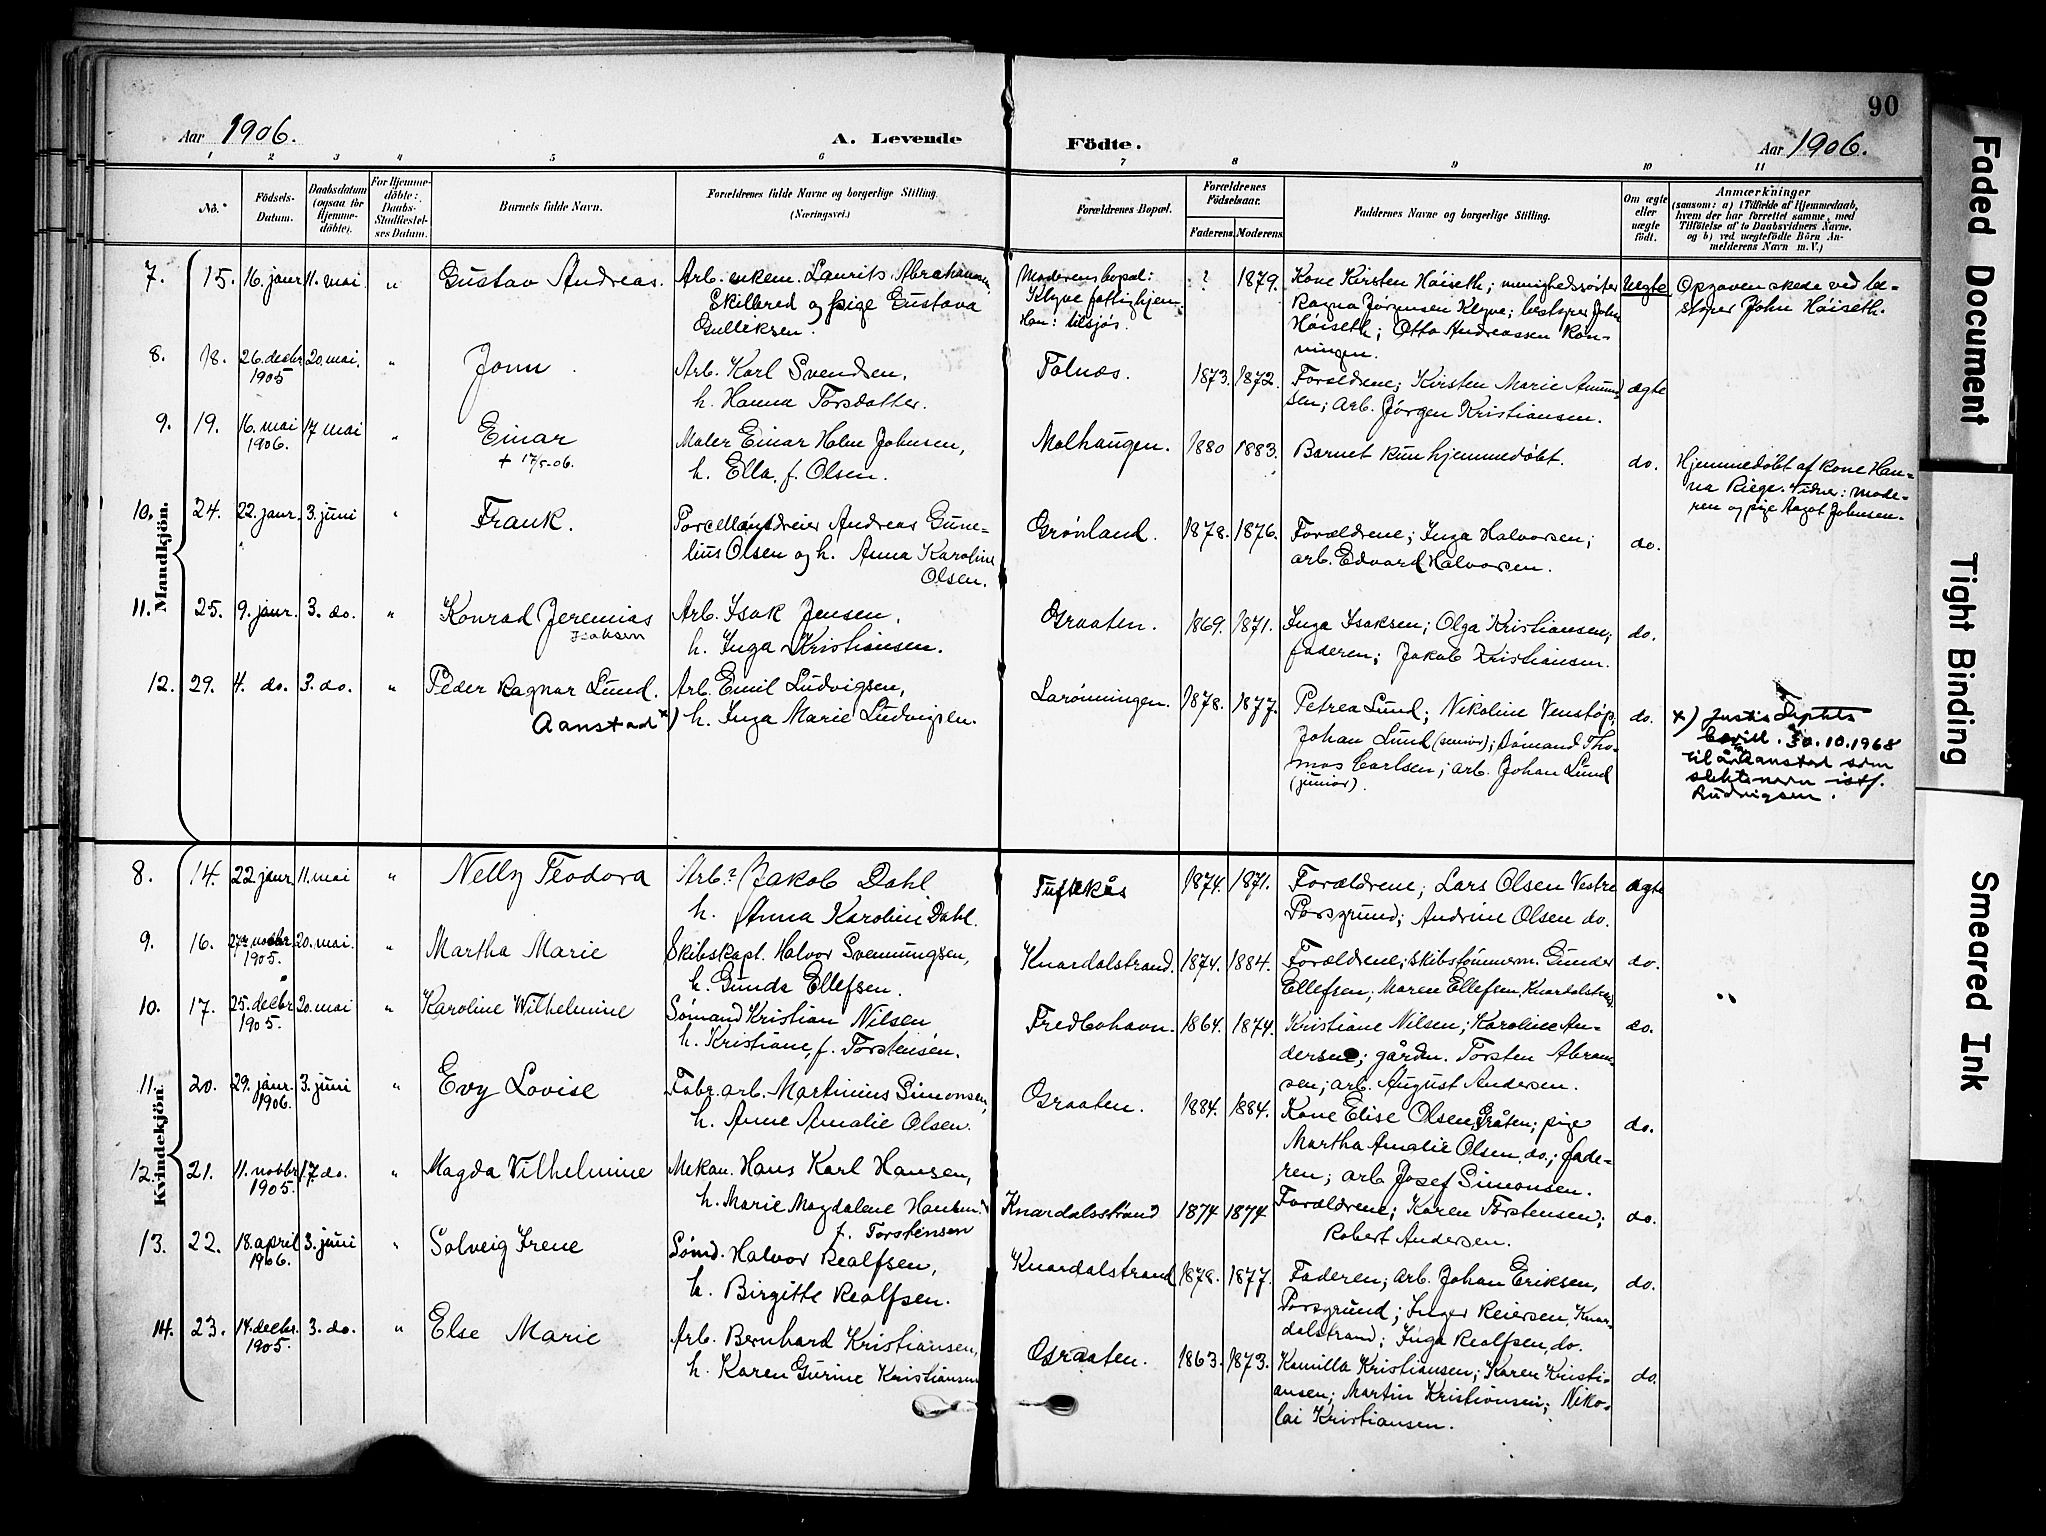 90
Aar 1906.
A. Levende Födte.
Aar 1906.
1 2 3 4 5 6 7 8 9 10 11
No.
Födsels-Datum.
Daabsdatum (ogsaa for Hjemme-döbte).
For Hjemme-döbte: Daabs-Stadfæstelses Datum.
Barnets fulde Navn.
Forældrenes fulde Navne og borgerlige Stilling.
(Næringsvei.)
Forældrenes Bopæl.
Forældrenes Födselsaar.
Faderens. Moderens.
Faddernes Navne og borgerlige Stilling.
Om ægte eller uægte födt.
Anmærkninger
(saasom: a) i Tilfælde af Hjemmedaab,
hvem der har forrettet samme, med
Tilföielse af to Daabsvidners Navne,
og b) ved uægtefödte Börn An-
melderens Navn m. V.)
Mandkjön.
7. 15. 16. janr 11. mai " Gustav Andreas. Arb. enkem. Laurits Abrahamsen
Skilbred og pige Gustava
Gulliksen.
Moderens bopæl:
Klyve fattighjem
Han: Lilsjø.
? 1879. Kone Kirsten Høiseth; menighedssøster
Ragna Jørgensen Klyve; bestyrer John
Høiseth; Otto Andreassen Røn-
ningen.
Uegte Opgaven skede ved be-
styrer John Høiseth.
8. 18. 26. decbr 1905 20. mai. " John. Arb. Karl Svendsen,
h. Hanna Torsdatter.
Tolnæs. 1873. 1872. Forældrene; Kirsten Marie Amund-
sen; arb. Jørgen Kristiansen.
ægte
9. 19. 16. mai 1906. 17 mai " Einar
+ 17/5-06.
Maler Einar Holm Johnsen,
h. Ella, f. Olsen.
Molhaugen. 1880 1883. Barnet kun hjemmedøbt. do.
Hjemmedøbt af kone Han-
na Riege. Vidner: Mode-
ren og pige Aagot Johnsen.
10. 24. 22. janr. 3. juni " Frank. Porcellænsdreier Andreas Gune-
lius Olsen og h. Anna Karoline
Olsen.
Grønland. 1878. 1876. Forældrene; Inga Halvorsen;
arb. Edvard Halvorsen.
do.
11. 25. 9. janr. 3. do. " Konrad Jeremias
Isaksen
Arb. Isak Jensen,
h. Inga Kristiansen.
Graaten. 1869. 1871. Inga Isaksen; Olga Kristiansen;
faderen; Jakob Kristiansen.
do.
12. 29. 4. do. 3. do. " Peder Ragnar Lund.
Aanstad x)
Arb. Emil Ludvigsen,
h. Inga Marie Ludvigsen.
Larønningen. 1878. 1877. Petrea Lund; Nikoline Venstøp,
Johan Lund (senior); sømand Tho-
mas Carlsen; arb. Johan Lund
(junior).
do.
x) Justis Deptets
bevill. 30.10.1968
til å ta Aanstad som
slektsnavn istf.
Ludvigsen.
Kvindekjön.
8. 14. 22. janr. 11. mai " Nelly Teodora Arb. Jakob Dahl
h. Anna Karoline Dahl.
Tuftekås 1874. 1871. Forældrene; Lars Olsen Vestre
Porsgrund; Andrine Olsen do.
ægte
9. 16. 27. novbr 1905. 20. mai. " Martha Marie Skibskapt. Halvor Svennungsen,
h. Gunda Ellefsen.
Knardalstrand. 1874. 1884. Forældrene; skibstømmerm. Gunder
Ellefsen; Maren Ellefsen, Knardalstrand
do.
10. 17. 25. decbr 1905. 20. mai " Karoline Wilhelmine Sømand Kristian Nilsen
h. Kristiane, f. Torstensen.
Fredbohavn. 1864. 1874. Kristiane Nilsen; Karoline An-
dersen; gårdm. Torsten Abram-
sen; arb. August Andersen.
do.
11. 20. 29. janr. 1906. 3. juni " Evy Lovise Fabr. arb. Martinius Simonsen,
h. Anne Amalie Olsen.
Graaten. 1884. 1884. Kone Elise Olsen, Gråten; pige
Martha Amalie Olsen, do.; fade-
ren; arb. Josef Simonsen.
do.
12. 21. 11. novbr 1905. 17 do. " Magda Vilhelmine Mekan. Hans Karl Hansen,
h. Marie Magdalene Hansen
f. Torstensen
Knardalsstrand 1874 1874 Forældrene; Karen Torstensen;
Robert Andersen.
do.
13. 22. 18. april 1906. 3. juni " Solveig Irene Sømd. Halvor Realfsen,
h. Birgitte Realfsen.
Knardalstrand 1878. 1877. Faderen; arb. Johan Eriksen,
Porsgrund; Inger Reiersen, Knar-
dalstrand; Inga Realfsen, do.
do.
14. 23. 14. decbr. 1905. 3. do. " Else Marie Arb. Bernhard Kristiansen,
h. Karen Gurine Kristiansen
Graaten. 1863. 1873. Kamilla Kristiansen; Karen Kristi-
ansen; Martin Kristiansen; Niko-
lai Kristiansen.
do.
Faded Document
Tight Binding
Smeared Ink